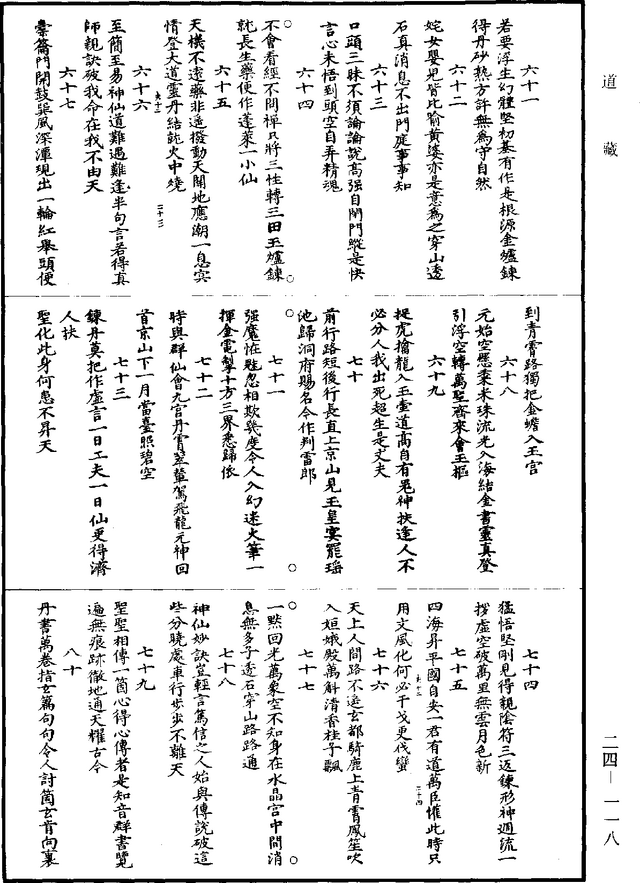 道藏
六十一
若要浮生幻體堅初基有作是根源金爐鍊
得丹砂熟方許無為守自然
六十二
姹女嬰兒皆比喻黃婆亦是意為之穿山透
石真消息不出門庭事事知
六十三
口頭三昧不須論論說高強自鬧門縱是快
言心未悟到頭空自弄精魂
六十四
不會看經不問禪只將三性轉三田玉爐鍊
就長生藥便作蓬萊一小仙
六十五
天機不遠藥非遙撥動天關地應潮一息實
情登大道靈丹結就火中燒
六十六
至簡至易神仙道難遇難逢半句言若得真
師親訣破我命在我不由天
六十七
橐籥門開鼓巽風深潭現出一輪紅舉頭便
到青霄路獨把金蟾入玉宮
六十八
元始空懸黍米珠流光入海結金書靈真登
引浮空轉萬聖齊來會玉樞
六十九
捉虎擒龍入玉壺道高自有鬼神扶逢人不
必分人我出死超生是丈夫
七十
前行路短後行長直上京山見玉皇宴罷瑤
池歸洞府賜名令作判雷郎
七十一
強魔怪魅忽相欺幾度令人入幻迷火筆一
揮金電掣十方三界悉歸依
七十二
時與群仙會九宮丹霄翠輦駕飛龍元神回
首京山下一月當臺照碧空
七十三
鍊丹莫把作虛言一日工夫一日仙更得濟
人扶
聖化此身何患不昇天
七十四
猛悟堅剛見得親陰符三返鍊形神週流一
拶虛空破萬里無雲月色新
七十五
四海昇平國自安一君有道萬臣懽此時只
用文風化何必干戈更伐蠻
七十六
天上人間路不遙玄都騎鹿上青霄鳳笙吹
入姮娥殿萬斛清香桂子飄
七十七
一點回光萬象空不知身在水晶宮中間消
息無多子透石穿山路路通
七十八
神仙妙訣豈輕言篤信之人始與傳說破這
些分曉處車行步步不離天
七十九
聖聖相傳一箇心得心傳者是知音群書覽
遍無痕跡徹地通天耀古今
八十
丹書萬卷指玄篇句句令人討箇玄肯向裏
二四—一一八